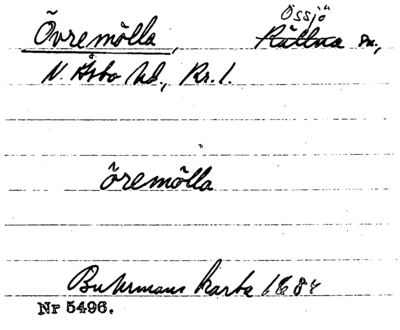 Össjö
Övremölla, Källna sn,
N. Åsbo hd., Kr. l.
Öremölla
Buhrmans karta 1684
Nr 5496.